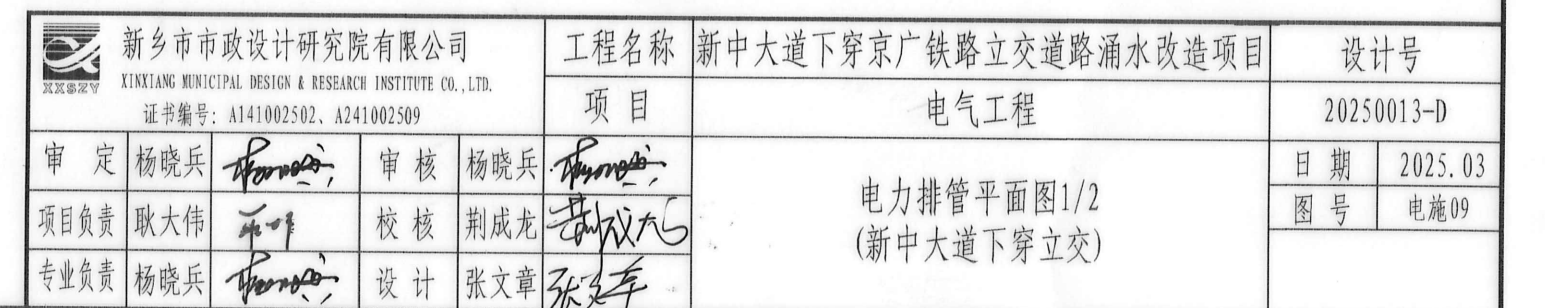 XXSZY
新乡市市政设计研究院有限公司
XINXIANG MUNICIPAL DESIGN & RESEARCH INSTITUTE CO.,LTD.
证书编号: A141002502、A241002509
工程名称 新中大道下穿京广铁路立交道路涌水改造项目 设计号
项 目 电气工程 20250013-D
审 定 杨晓兵 审 核 杨晓兵
项目负责 耿大伟 校 核 荆成龙 荆成龙
专业负责 杨晓兵 设 计 张文章 张文章
电力排管平面图1/2
(新中大道下穿立交)
日 期 2025.03
图 号 电施09